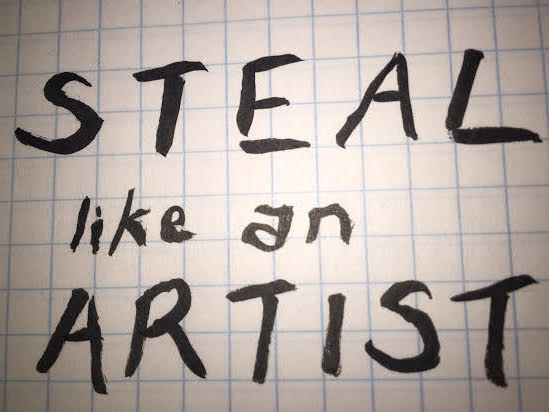 STEAL
like an
ARTIST